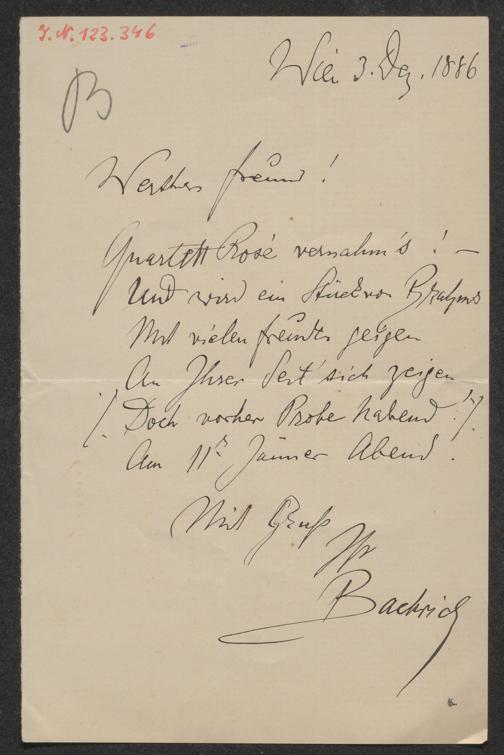 J.N. 123.346
B
Wien 3. Dez. 1886
Werther Freund!
Quartett Rosé vernahm's! –
Und wird ein Stück von Brahms
Mit vielen Freuden geigen
An Ihrer Seit' sich zeigen
./. Doch vorher Probe habend! ./.
Am 11t Jänner Abend.
Mit Gruß
Ihr
Bachrich